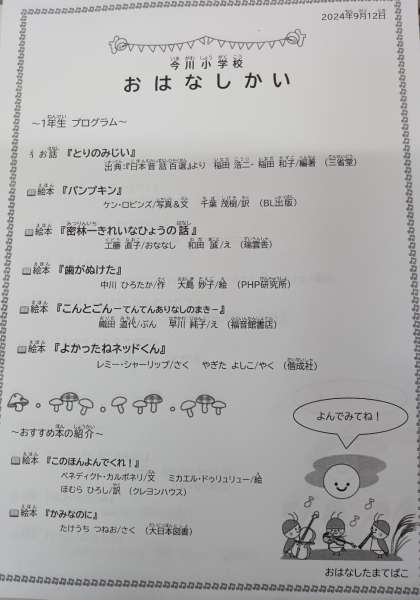 2024年9月12日
今川小学校
おはなしかい
～1年生 プログラム～
お話 『とりのみじい』
出典:『日本昔話百選』より 稲田 浩二・稲田 和子/編著 (三省堂)
絵本 『パンプキン』
ケン・ロビンズ/写真&文 千葉 茂樹/訳 (BL出版)
絵本 『密林一きれいなひょうの話』
工藤 直子/おななし 和田 誠/え (瑞雲舎)
絵本 『歯がぬけた』
中川 ひろたか/作 大島 妙子/絵 (PHP研究所)
絵本 『こんとごん－てんてんありなしのまき－』
織田 道代/ぶん 早川 純子/え (福音館書店)
絵本 『よかったねネッドくん』
レミー・シャーリップ/さく やぎた よしこ/やく (偕成社)
～おすすめ本の紹介～
よんでみてね!
絵本 『このほんよんでくれ!』
ベネディクト・カルボネリ/文 ミカエル・ドゥリュリュー/絵
ほむら ひろし/訳 (クレヨンハウス)
絵本 『かみなのに』
たけうち つねお/さく (大日本図書)
おはなしたまてばこ